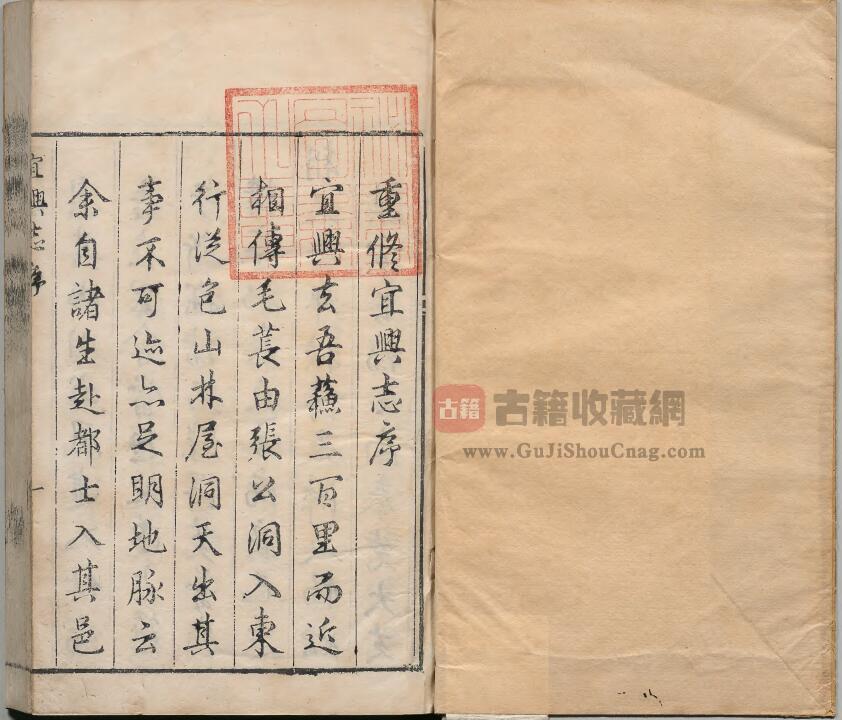 重修宜興志序
宜興去吾蘓三百里而近
相傳毛萇由張公洞入東
行從包山林屋洞天出其
事不可迹亦足明地脉云
余自諸生赴都士入其邑
宜興志序
一
古籍
古籍收藏網
www.GuJiShouCnag.com